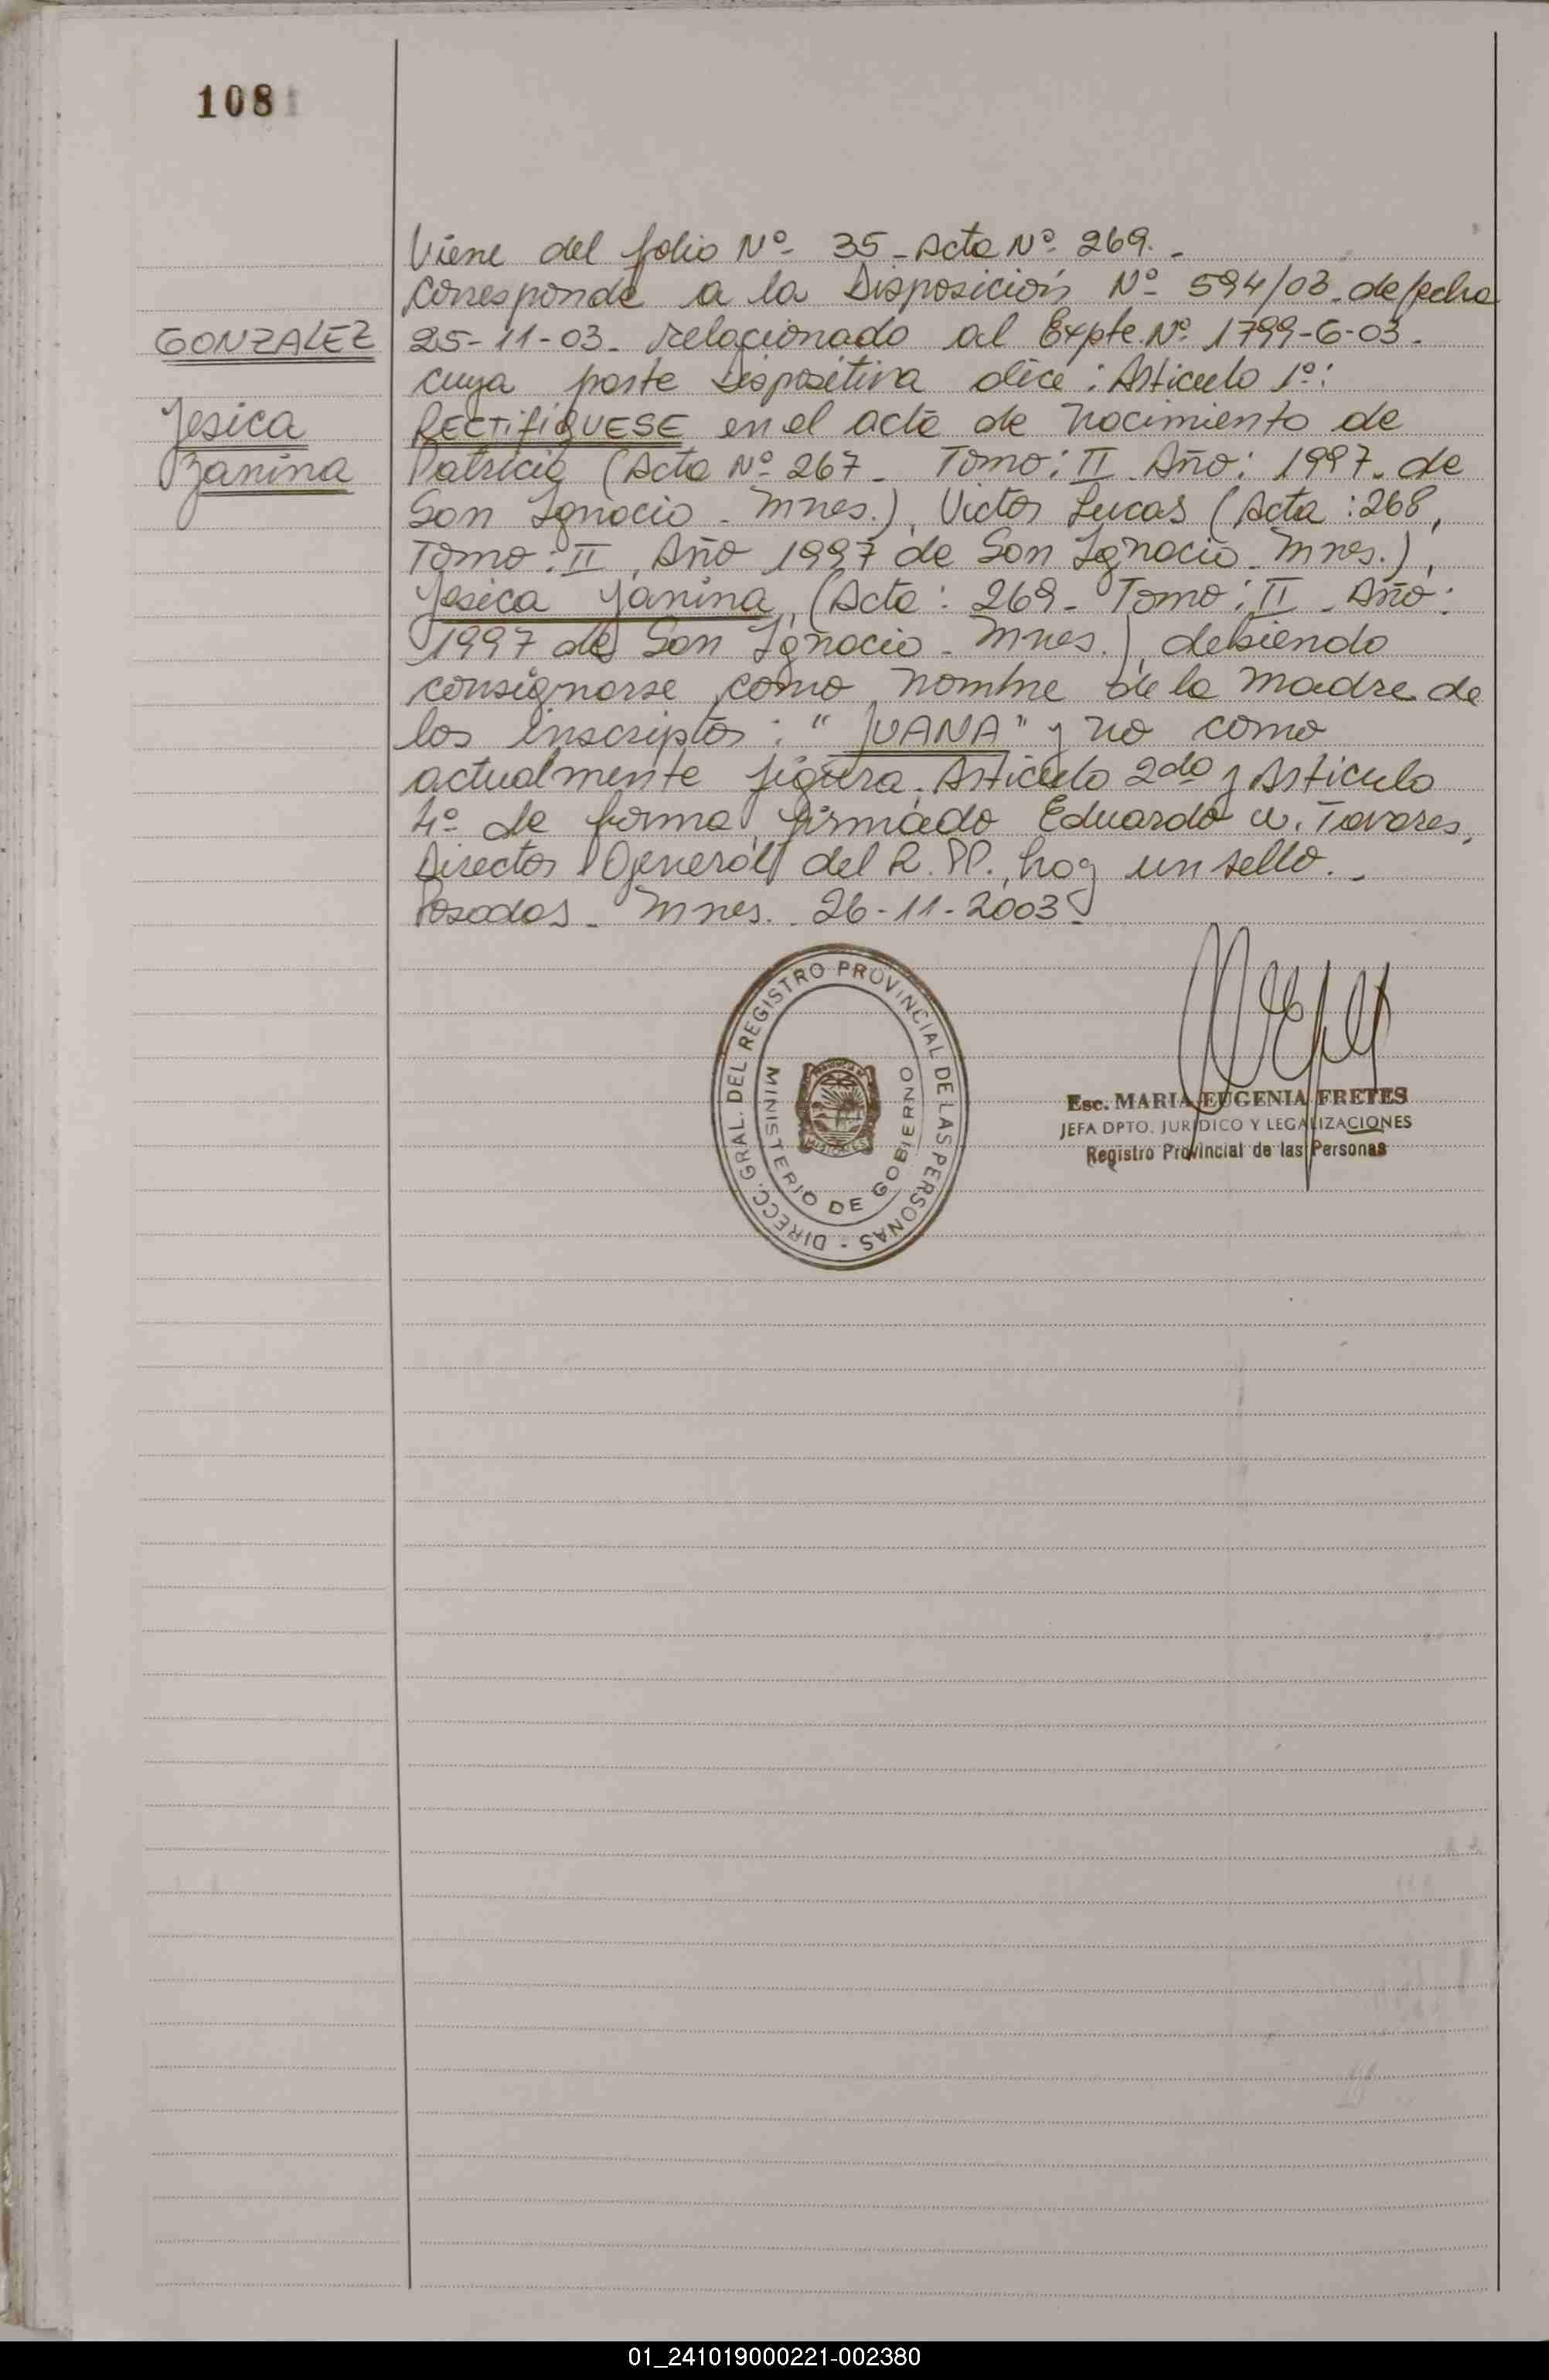 108
Viene del folio Nº 35 - Acta Nº 269. -
Corresponde a la Disposición Nº 594/03. de fecha
GONZALEZ
25-11-03. relacionado al Expte. Nº 1799-G-03.
cuya parte Dispositiva dice: Articulo 1º:
Jesica
RECTIFIQUESE en el acta de nacimiento de
Banina
Patricia (Acta Nº 267 - Tomo: II - Año: 1997. de
San Ignacio - Mnes.), Victor Lucas (Acta: 268,
Tomo: II, Año 1997 de San Ignacio - Mnes.),
Jesica Yanina, (Acta: 269 - Tomo: II - Año:
1997 de San Ignacio - Mnes.), debiendo
consignarse como nombre de la madre de
los inscriptos: "JUANA" y no como
actualmente figura. Articulo 2do y Articulo
4º de forma, firmado Eduardo A. Tavares,
Director General del R. PP., hay un sello. -
Posadas - Mnes. - 26-11-2003 -
DIRECC. GRAL. DEL REGISTRO PROVINCIAL DE LAS PERSONAS -
MINISTERIO DE GOBIERNO
MISIONES
Esc. MARIA EUGENIA FRETES
JEFA DPTO. JURIDICO Y LEGALIZACIONES
Registro Provincial de las Personas
01_241019000221-002380